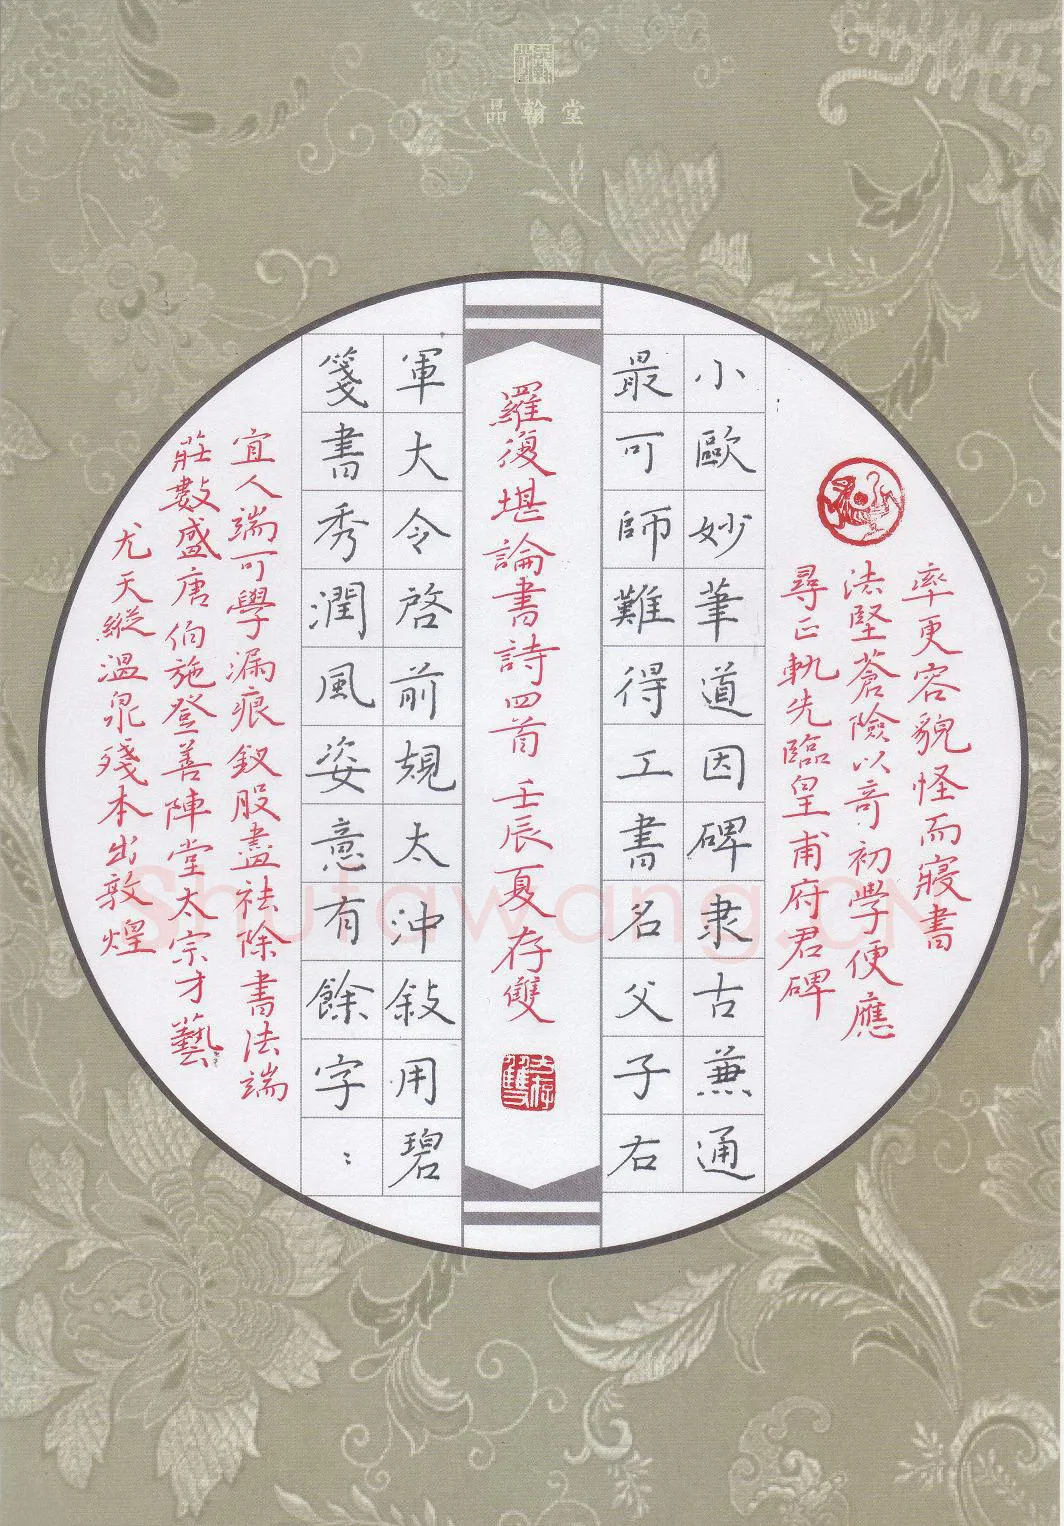 品翰堂
率更容貌怪而寢書
法堅蒼險以奇初學便應
尋正軌先臨皇甫府君碑
小歐妙筆道因碑隶古兼通
最可師難得工書名父子右
羅復堪論書詩四首壬辰夏存雙
軍大令啓前規太沖敍用碧
箋書秀潤風姿意有餘字:
宜人端可學漏痕釵股盡祛除書法端
莊數盛唐伯施登善陣堂太宗才藝
尤天縱溫泉殘本出敦煌
shufawang.CN